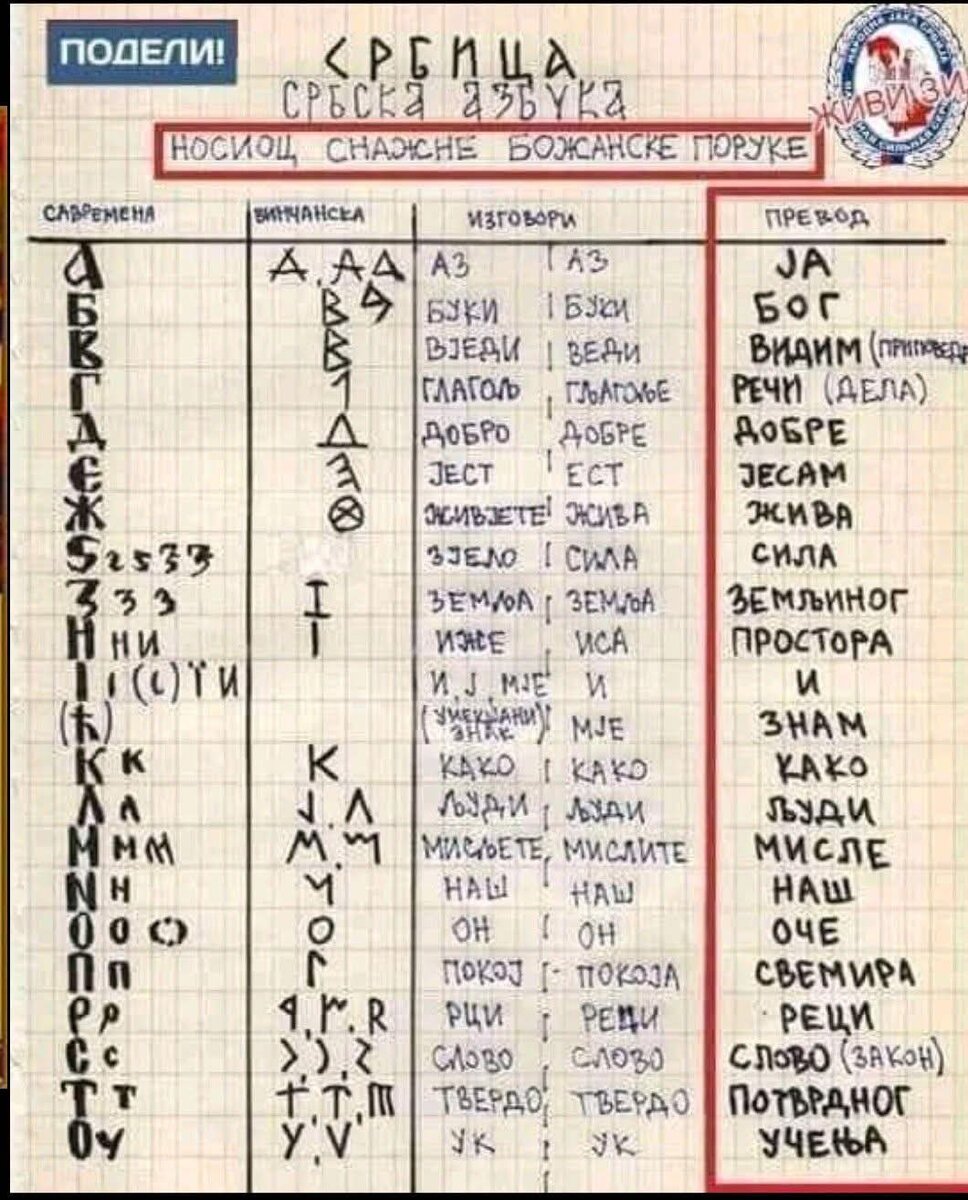 ПОДЕЛИ!
СРБИЦА
СРБСКА АЗБУКА
ЖИВИ ЗИ
НОСИОЦ СНАЖНЕ БОЖАНСКЕ ПОРУКЕ
САВРЕМЕНА ВИНЧАНСКА ИЗГОВОРИ ПРЕВОД
А АЗ АЗ ЈА
Б БУКИ БУКИ БОГ
В ВЈЕДИ ВЕДИ ВИДИМ
Г ГЛАГОЉ ГЉАГОЉЕ РЕЧИ (ДЕЛА)
Д ДОБРО ДОБРЕ ДОБРЕ
Є ЈЕСТ ЕСТ ЈЕСАМ
Ж ЖИВЈЕТЕ ЖИВА ЖИВА
Ѕ ЗЈЕЛО СИЛА СИЛА
З З З ЗЕМЉА ЗЕМЉА ЗЕМЉИНОГ
Н Н И ИЖЕ ИСА ПРОСТОРА
І І (ι) Ї И И, Ј, МЈЕ И И
(Ћ) (УМЕКШАНИ ЗНАК) МЈЕ ЗНАМ
К к К КАКО КАКО КАКО
Л л Ј, Л ЉУДИ ЉУДИ ЉУДИ
М м м М, МИСЉЕТЕ МИСЛИТЕ МИСЛЕ
N н НАШ НАШ НАШ
О о О ОН ОН ОЧЕ
П п Г ПОКОЈ ПОКОЈА СВЕМИРА
Р р R РЦИ РЕЦИ РЕЦИ
С с СЛОВО СЛОВО СЛОВО (ЗАКОН)
Т т Т, Т, ТВЕРДО ТВЕРДО ПОТВРДНОГ
Оу У, V УК УК УЧЕЊА